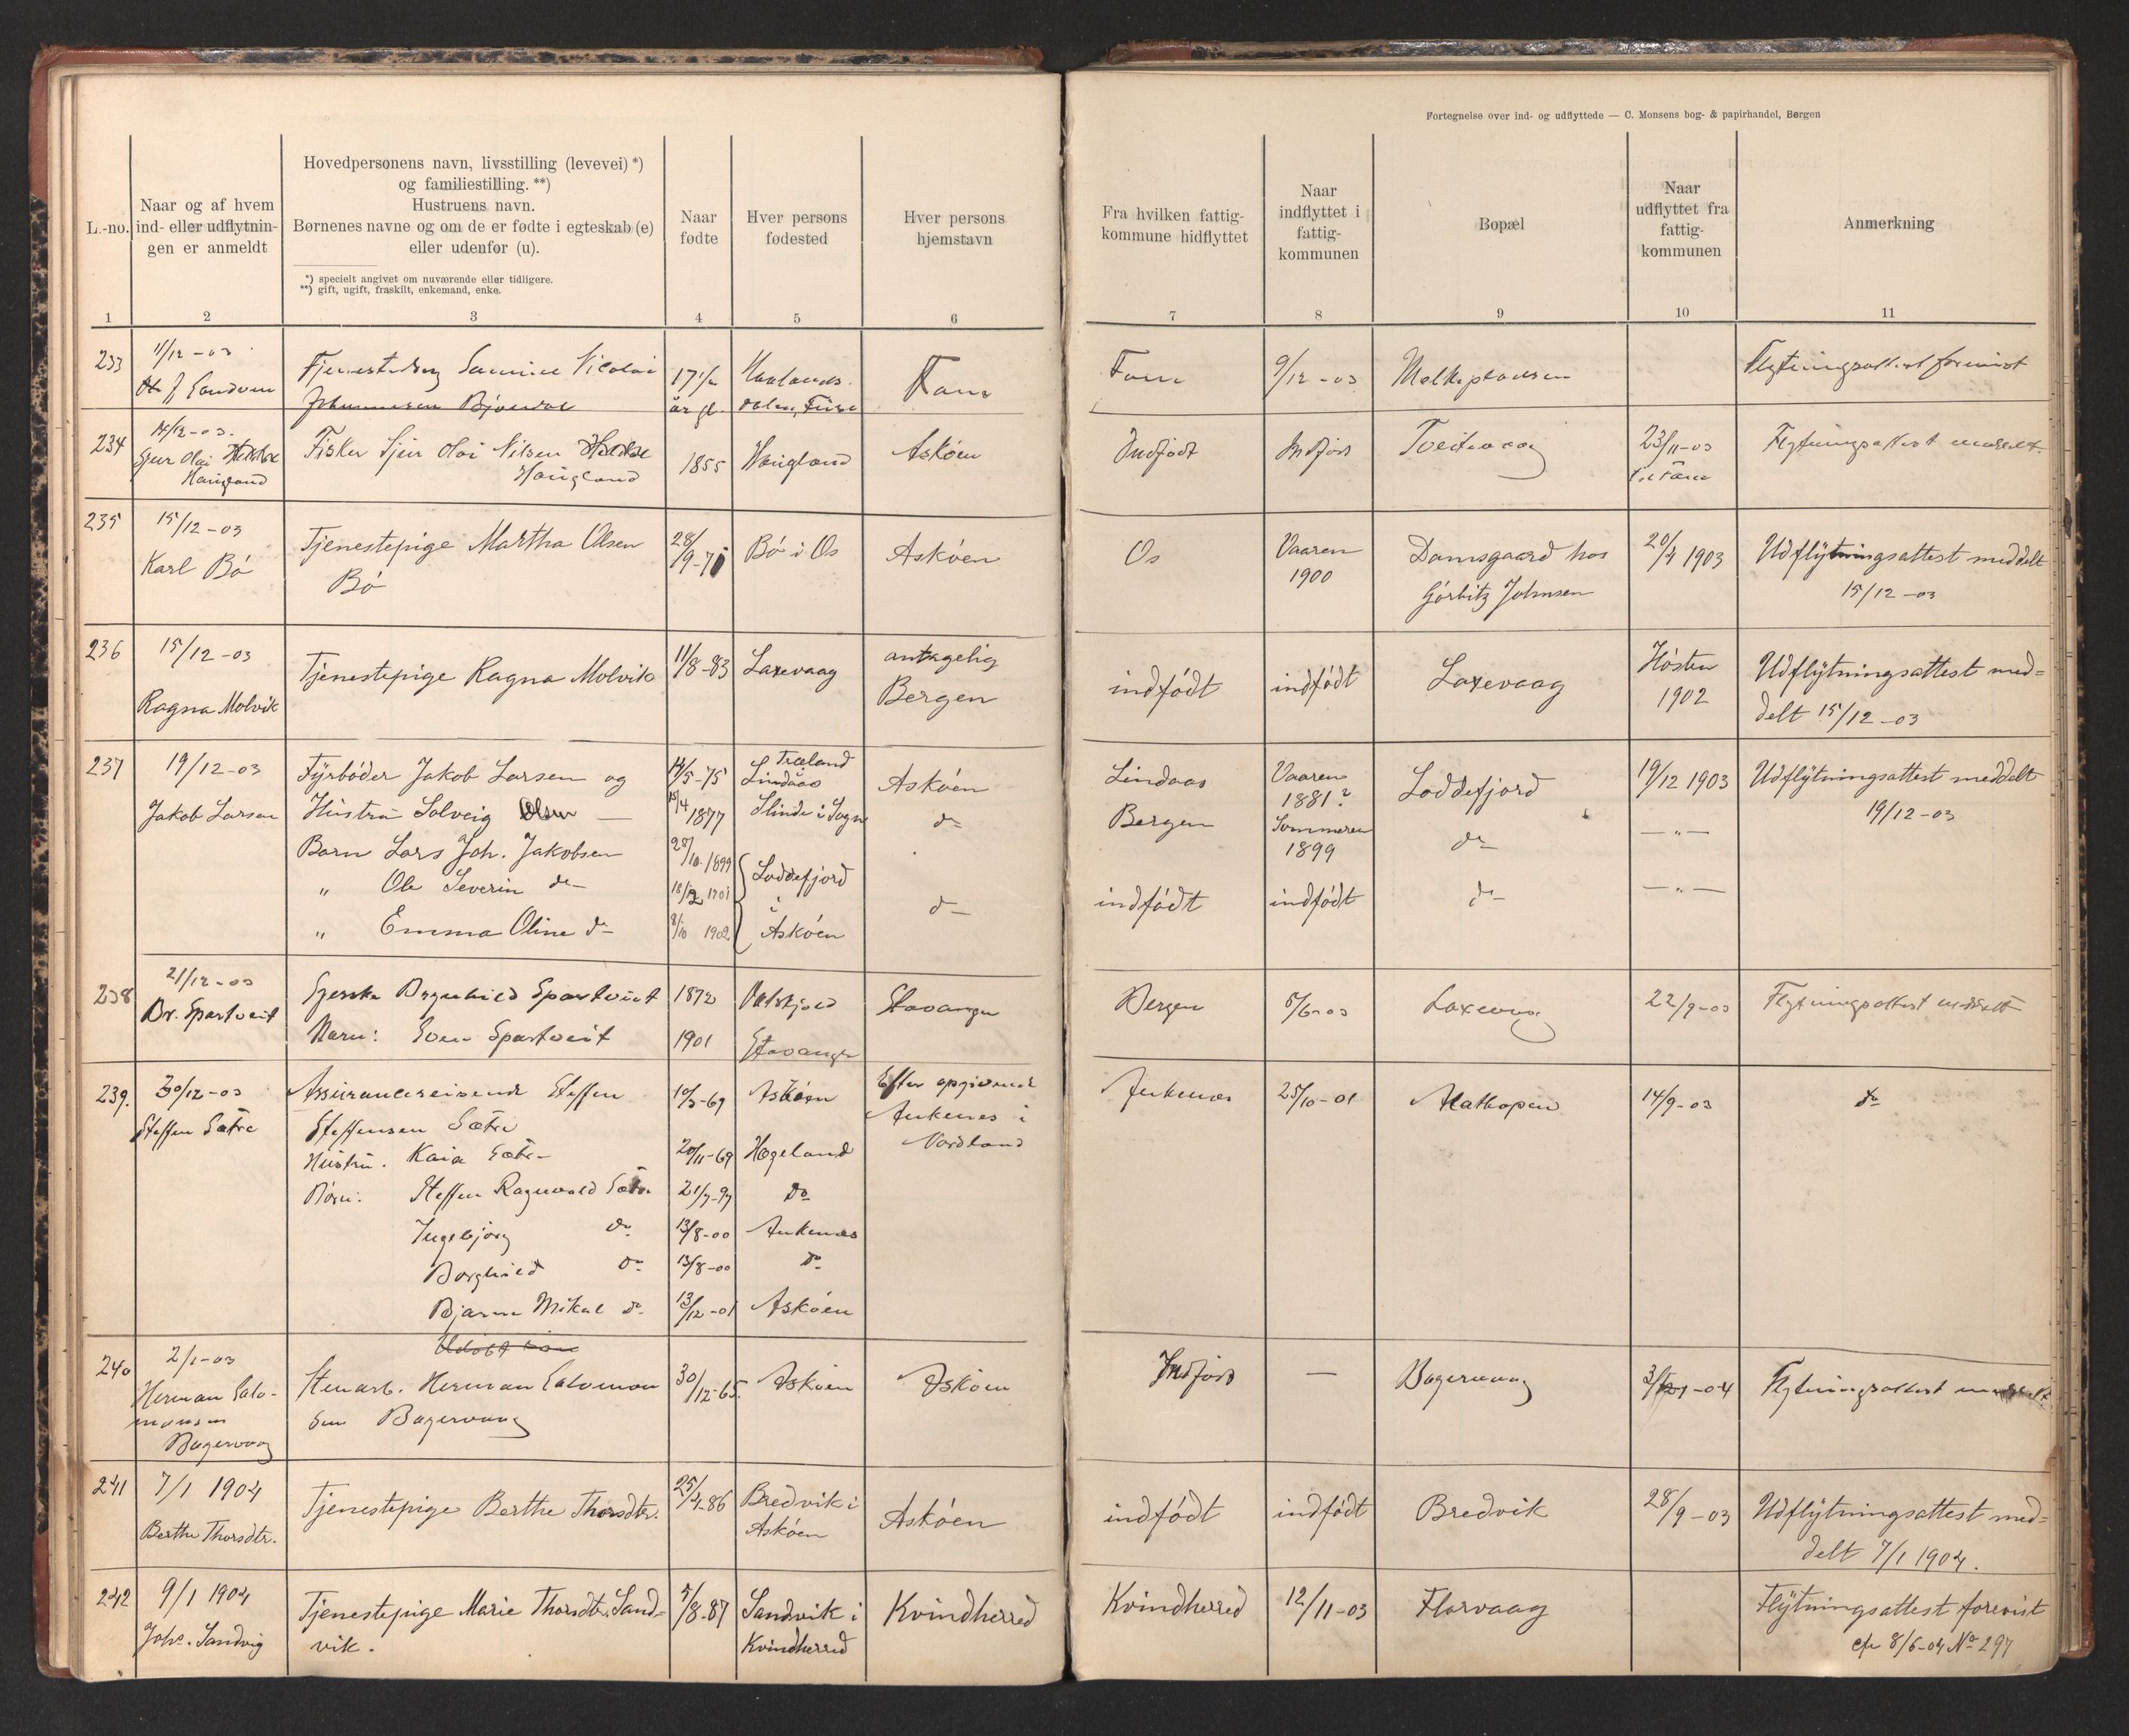 Fortegnelse over ind- og udflyttede — C. Monsens bog- & papirhandel, Bergen
L.-no.
Naar og af hvem
ind- eller udflytnin-
gen er anmeldt
Hovedpersonens navn, livsstilling (levevei) *)
og familiestilling. **)
Hustruens navn.
Børnenes navne og om de er fødte i egteskab (e)
eller udenfor (u).
*) specielt angivet om nuværende eller tidligere.
**) gift, ugift, fraskilt, enkemand, enke.
Naar
fødte
Hver persons
fødested
Hver persons
hjemstavn
Fra hvilken fattig-
kommune hidflyttet
Naar
indflyttet i
fattig-
kommunen
Bopæl
Naar
udflyttet fra
fattig-
kommunen
Anmerkning
1 2 3 4 5 6 7 8 9 10 11
233 11/12 - 03 Nicolai 17 1/2 Fana Fana 9/12 - 03 Flytningsattest forevist
Sandven Johannesen år gl.
234 14/12 - 03. Fisker Sjur Olai Nilsen 1855 Haugland Askøen Indfødt Indfødt Tveitevaag 23/11-03 Flytningsattest meddelt
Sjur Olai Haugland til Fane
Haugland
235 15/12 - 03 Tjenestepige Martha Olsen 28/9-71 Bø i Os Askøen Os Vaaren Damsgaard hos 20/4 1903 Udflytningsattest meddelt
Karl Bø Bø 1900 Görbitz Johnsen 15/12 - 03
236 15/12 - 03 Tjenestepige Ragna Molvik 11/8-83 Laxevaag antagelig indfødt indfødt Laxevaag Høsten Udflytningsattest med=
Ragna Molvik Bergen 1902 delt 15/12 - 03
237 19/12-03 Fyrbøder Jakob Larsen og 14/5-75 Træland Askøen Lindaas Vaaren Loddefjord 19/12 1903 Udflytningsattest meddelt
Lindaas 1881?
Jakob Larsen Hustru Solveig Olsen — 15/4 1877 Slinde i Sogn do Bergen Sommeren do — " — 19/12 - 03
1899
Barn Lars Joh. Jakobsen 28/10 1899 Loddefjord
" Ole Severin do 18/12 1901 i do indfødt indfødt do — " —
" Emma Oline do 8/10 1902 Askøen
238 21/12 - 03 Spartveit 1872 Stavanger Bergen 5/6-03 Laxevaag 22/9-03 Flytningsattest meddelt
Br. Spartveit Barn: Spartveit 1901 Stavanger
239. 30/12-03 Assurancereisende Steffen 10/5-69 Askøen Efter opgivende Ankenes 25/10-01 Mathopen 14/9-03 do
Steffen Sætre Steffensen Sætre Ankenes i
Hustru. Kaia Sætre 20/11-69 Hægeland Nordland
Børn: Steffen Ragnvald Sætre 21/7-97 Do
Ingebjørg do 13/8-00 Ankenes
Borghild do 13/8-00 do
Bjarne Mikal do 13/12-01 Askøen
240 2/1-03 Stenarb. Herman Salomon 30/12-65 Askøen Askøen Indfød — Bagervaag 3/1-04 Flytningsattest meddelt
Herman Salo-
monsen sen Bagervaag
Bagervaag
241 7/1 1904 Tjenestepige Berthe Thorsdtr. 25/4-86 Bredvik i Askøen indfødt indfødt Bredvik 28/9 - 03 Udflytningsattest med=
Berthe Thorsdtr. Askøen delt 7/1 1904.
242 9/1 1904 Tjenestepige Marie Thorsdtr. Sand= 5/8-87 Sandvik i Kvindherred Kvindherred 12/11-03 Florvaag Flytningsattest forevist
Johs. Sandvig vik. Kvindherred cfr 8/6-04 No 297